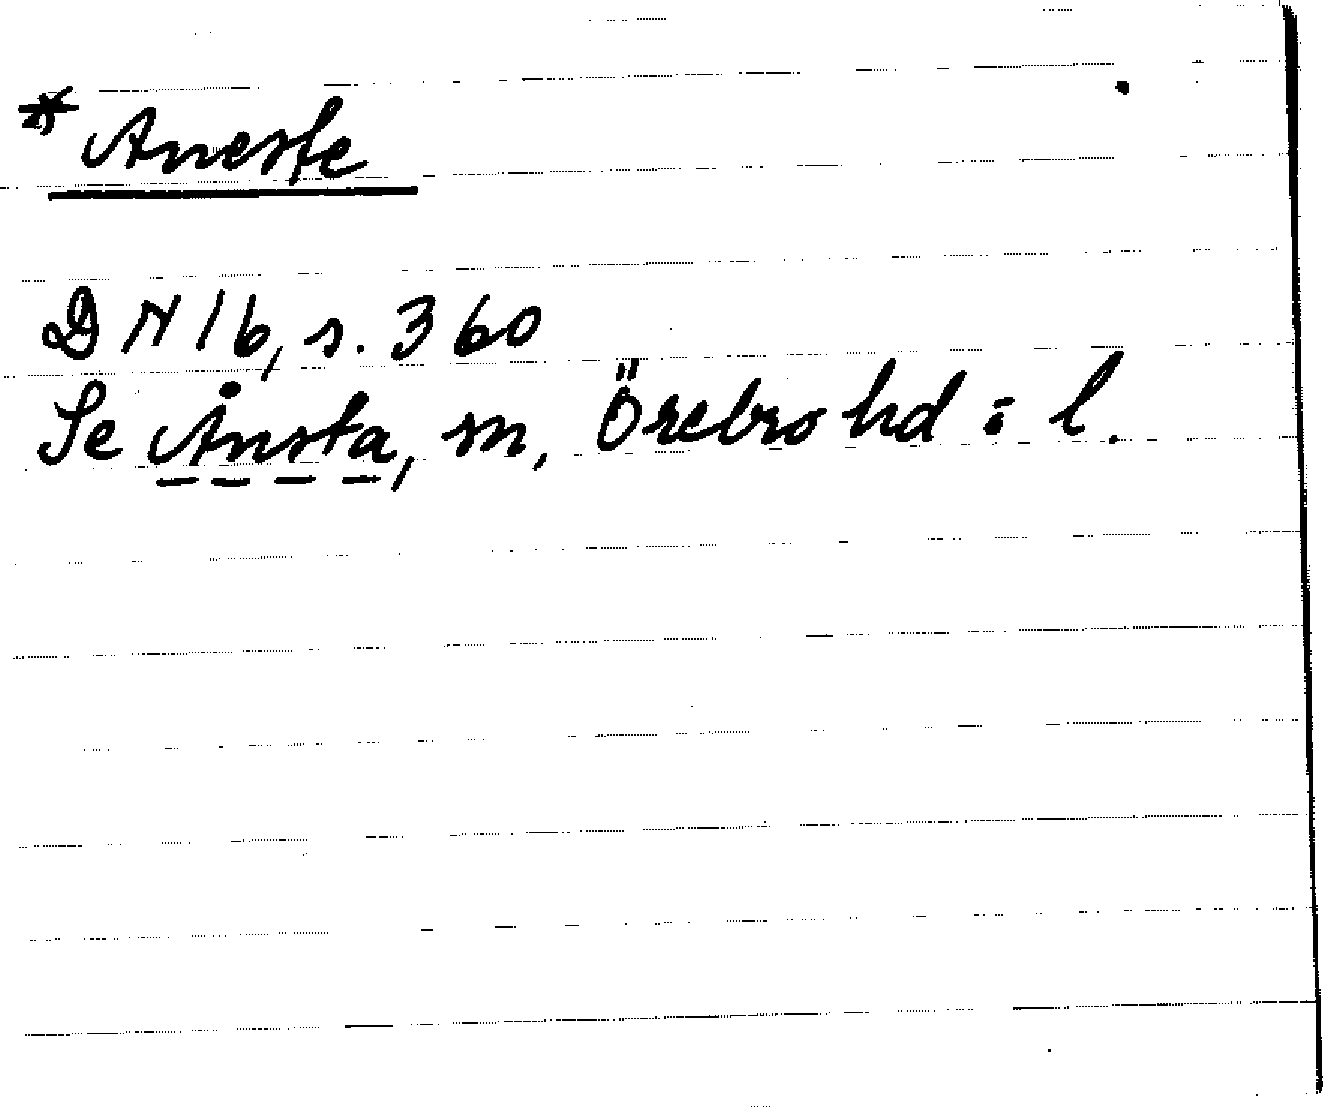 * Aneste
DN 16, s. 360
Se Ånsta, sn, Örebro hd o l.